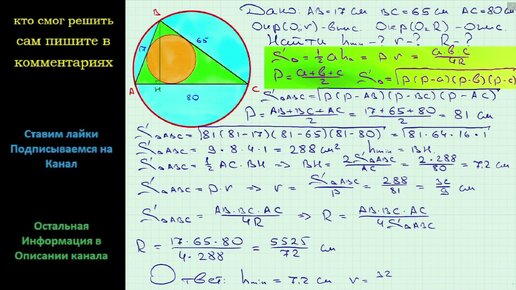 кто смог решить
сам пишите в
комментариях
Ставим лайки
Подписываемся на
Канал
Остальная
Информация в
Описании канала
B
17
65
A
H
C
80
Дано: AB=17 см BC=65 см AC=80 см
Окр(O,r)-впис. Окр(O,R)-опис.
Найти hmin-? r-? R-?
S△ = 1/2 a ha = p r = a·b·c/4R
p = (a+b+c)/2 S△ = √(p(p-a)(p-b)(p-c))
S△ABC = √(p(p-AB)(p-BC)(p-AC))
p = (AB+BC+AC)/2 = (17+65+80)/2 = 81 см
S△ABC = √(81(81-17)(81-65)(81-80)) = √(81·64·16·1)
S△ABC = 9·8·4·1 = 288 см² hmin = BH.
S△ABC = 1/2 AC·BH ⇒ BH = 2S△ABC/AC = 2·288/80 = 7.2 см
S△ABC = p·r ⇒ r = S△ABC/p = 288/81 = 32/9 см
S△ABC = AB·BC·AC/4R ⇒ R = AB·BC·AC/4S△ABC
R = 17·65·80/4·288 = 5525/72 см
Ответ: hmin = 7.2 см r = 32